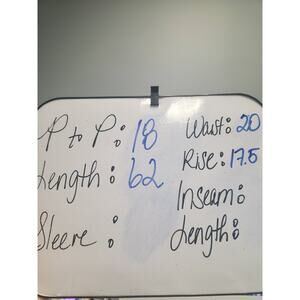 P to P: 18
Length: 62
Sleeve:
Waist: 20
Rise: 17.5
Inseam:
Length: